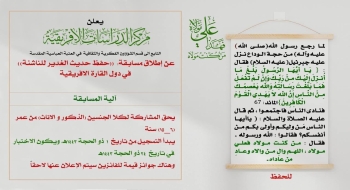 يعلن
مركز الدراسات الافريقية
التابع الى قسم الشؤون الفكرية والثقافية في العتبة العباسية المقدسة
عن إطلاق مسابقة: ((حفظ حديث الغدير للناشئة))
في دول القارة الافريقية
آلية المسابقة
يحق المشاركة لكلا الجنسين (الذكور و الاناث) من عمر
سنة
يبدأ التسجيل من تاريخ: ١ ذي الحجة ١٤٤٢هـ، ويكون الاختبار
في تاريخ ذي الحجة ١٤٤٢هـ
وهناك جوائز قيمة للفائزين سيتم الاعلان عنها لاحقاً
علي
فهذا
من كنت مولاه
لما رجع رسول الله(صلى الله
عليه وآله) من حجة الوداع نزل
عليه جبرئيل(عليه السلام) فقال
{ يا أيها الرسول بلغ ما
أنزل إليك من ربك وإن لم
تفعل فما بلغت رسالته والله يعصمك
من الناس إن الله لا يهدي القوم
الكافرين} المائدة: 67
فنادى الناس فاجتمعوا، ثم قال
عليه الصلاة والسلام: ((ياأيها
الناس من وليكم وأولى بكم من
أنفسكم؟ فقالوا: الله ورسوله.
فقال: من كنت مولاه فعلي
مولاه، اللهم وال من والاه وعاد
من عاداه.
للحفظ